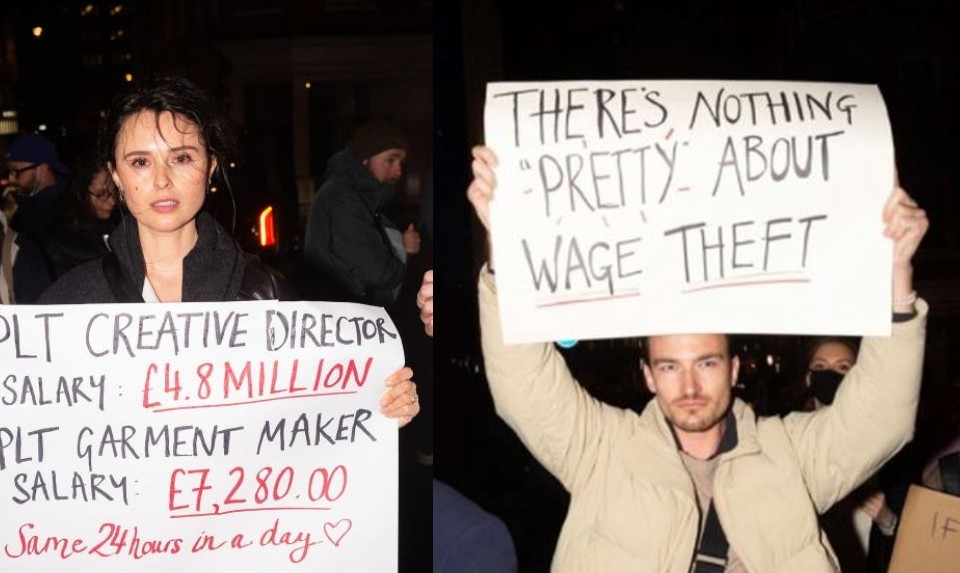 PLT CREATIVE DIRECTOR
SALARY: £4.8 MILLION
PLT GARMENT MAKER
SALARY: £7,280.00
Same 24 hours in a day ♡
THERE'S NOTHING
"PRETTY" ABOUT
WAGE THEFT
IF